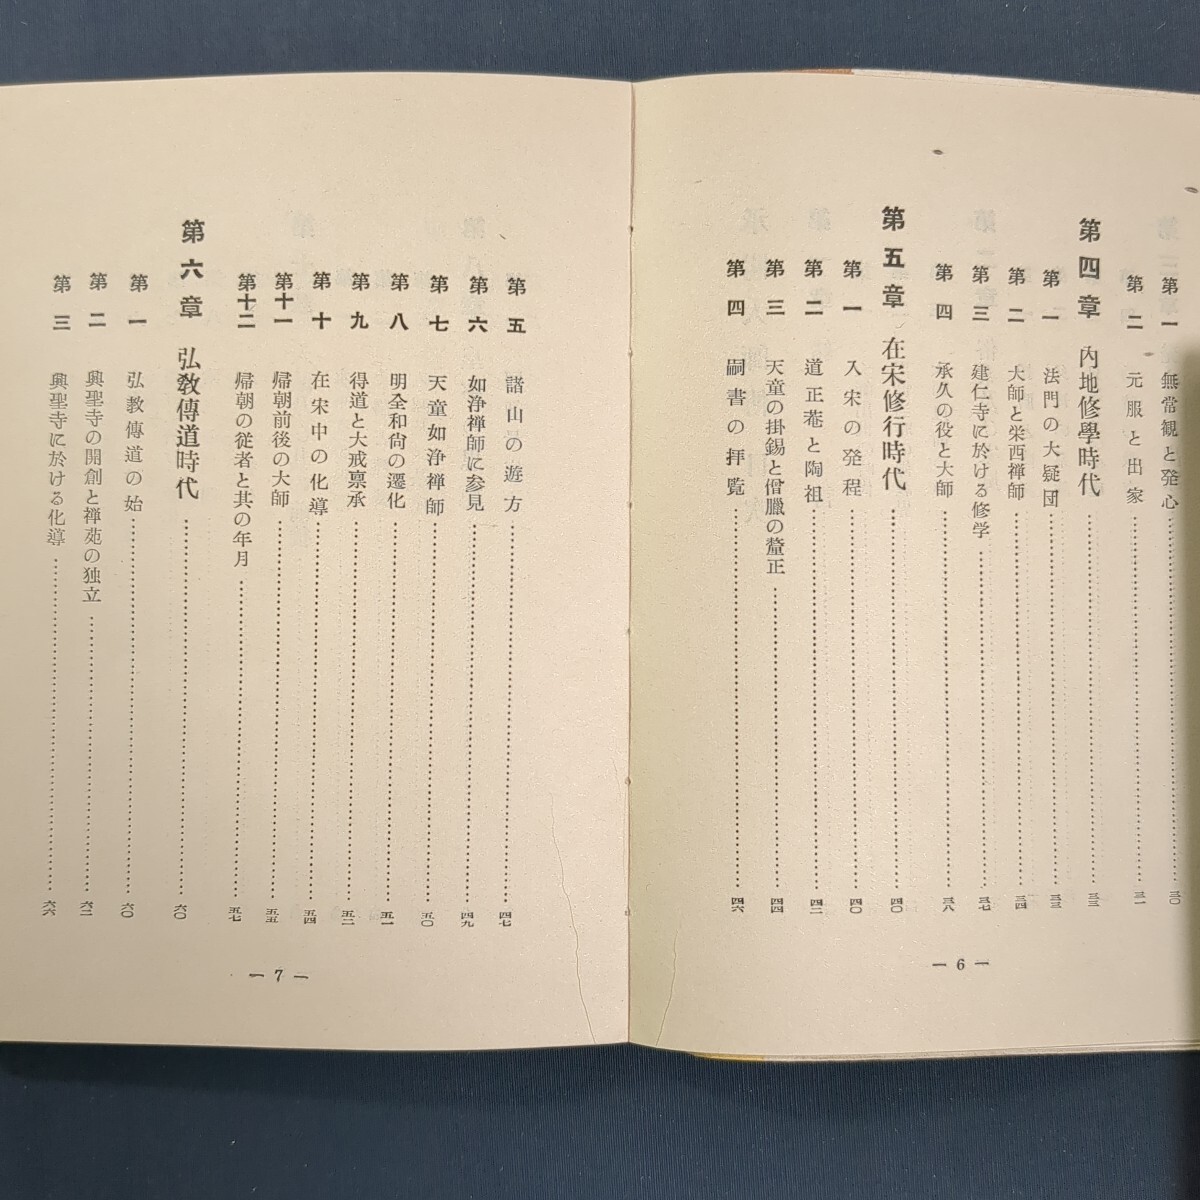 第一 無常観と発心 三〇
第二 元服と出家 三一
第四章 內地修學時代 三三
第一 法門の大疑団 三三
第二 大師と栄西禅師 三四
第三 建仁寺に於ける修学 三七
第四 承久の役と大師 三八
第五章 在宋修行時代 四〇
第一 入宋の発程 四〇
第二 道正菴と陶祖 四二
第三 天童の掛錫と僧臘の釐正 四四
第四 嗣書の拝覧 四六
— 6 —
第五 諸山の遊方 四七
第六 如浄禅師に参見 四九
第七 天童如浄禅師 五〇
第八 明全和尙の遷化 五一
第九 得道と大戒禀承 五二
第十 在宋中の化導 五四
第十一 帰朝前後の大師 五五
第十二 帰朝の従者と其の年月 五七
第六章 弘敎傳道時代 六〇
第一 弘教傳道の始 六〇
第二 興聖寺の開創と禅苑の独立 六二
第三 興聖寺に於ける化導 六六
— 7 —